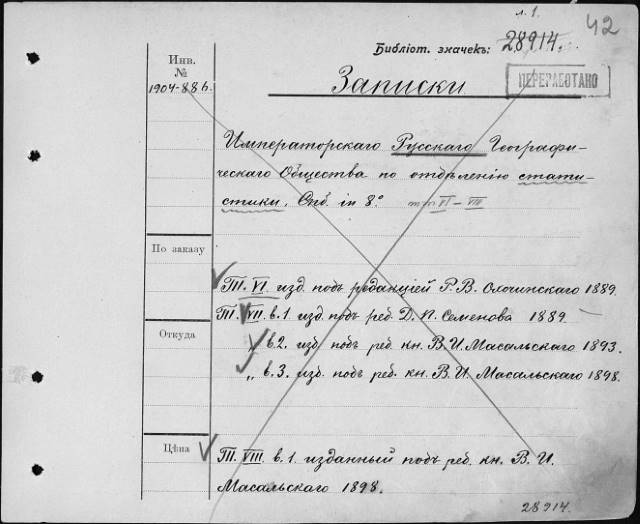 л. 1.
42
Библіот. значекъ: 28914.
Инв.
№
1904-886.
ПЕРЕРАБОТАНО
Записки
Императорскаго Русскаго Географи-
ческаго Общества по отдѣленію стати-
стики. Спб. in 8° тт. VI – VIII
По заказу
Т. VI. изд. подъ редакціей Р. В. Охочинскаго 1889.
Т. VII. в. 1 изд. подъ ред. Д. П. Семенова 1889 –
Откуда
„ в. 2. изд. подъ ред. кн. В. И. Масальскаго 1893.
„ в. 3. изд. подъ ред. кн. В. И. Масальскаго 1898.
Цѣна
Т. VIII. в. 1. изданный подъ ред. кн. В. И.
Масальскаго 1898.
28914.